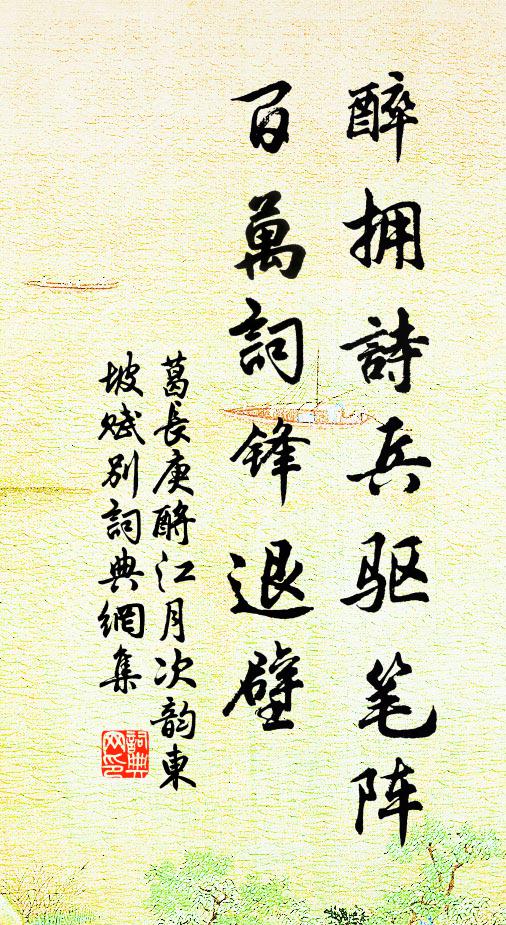 醉拥詩兵驱笔阵
百萬詞锋退壁
葛長庚酹江月次韵東
坡赋别詞典網集
詞典网印